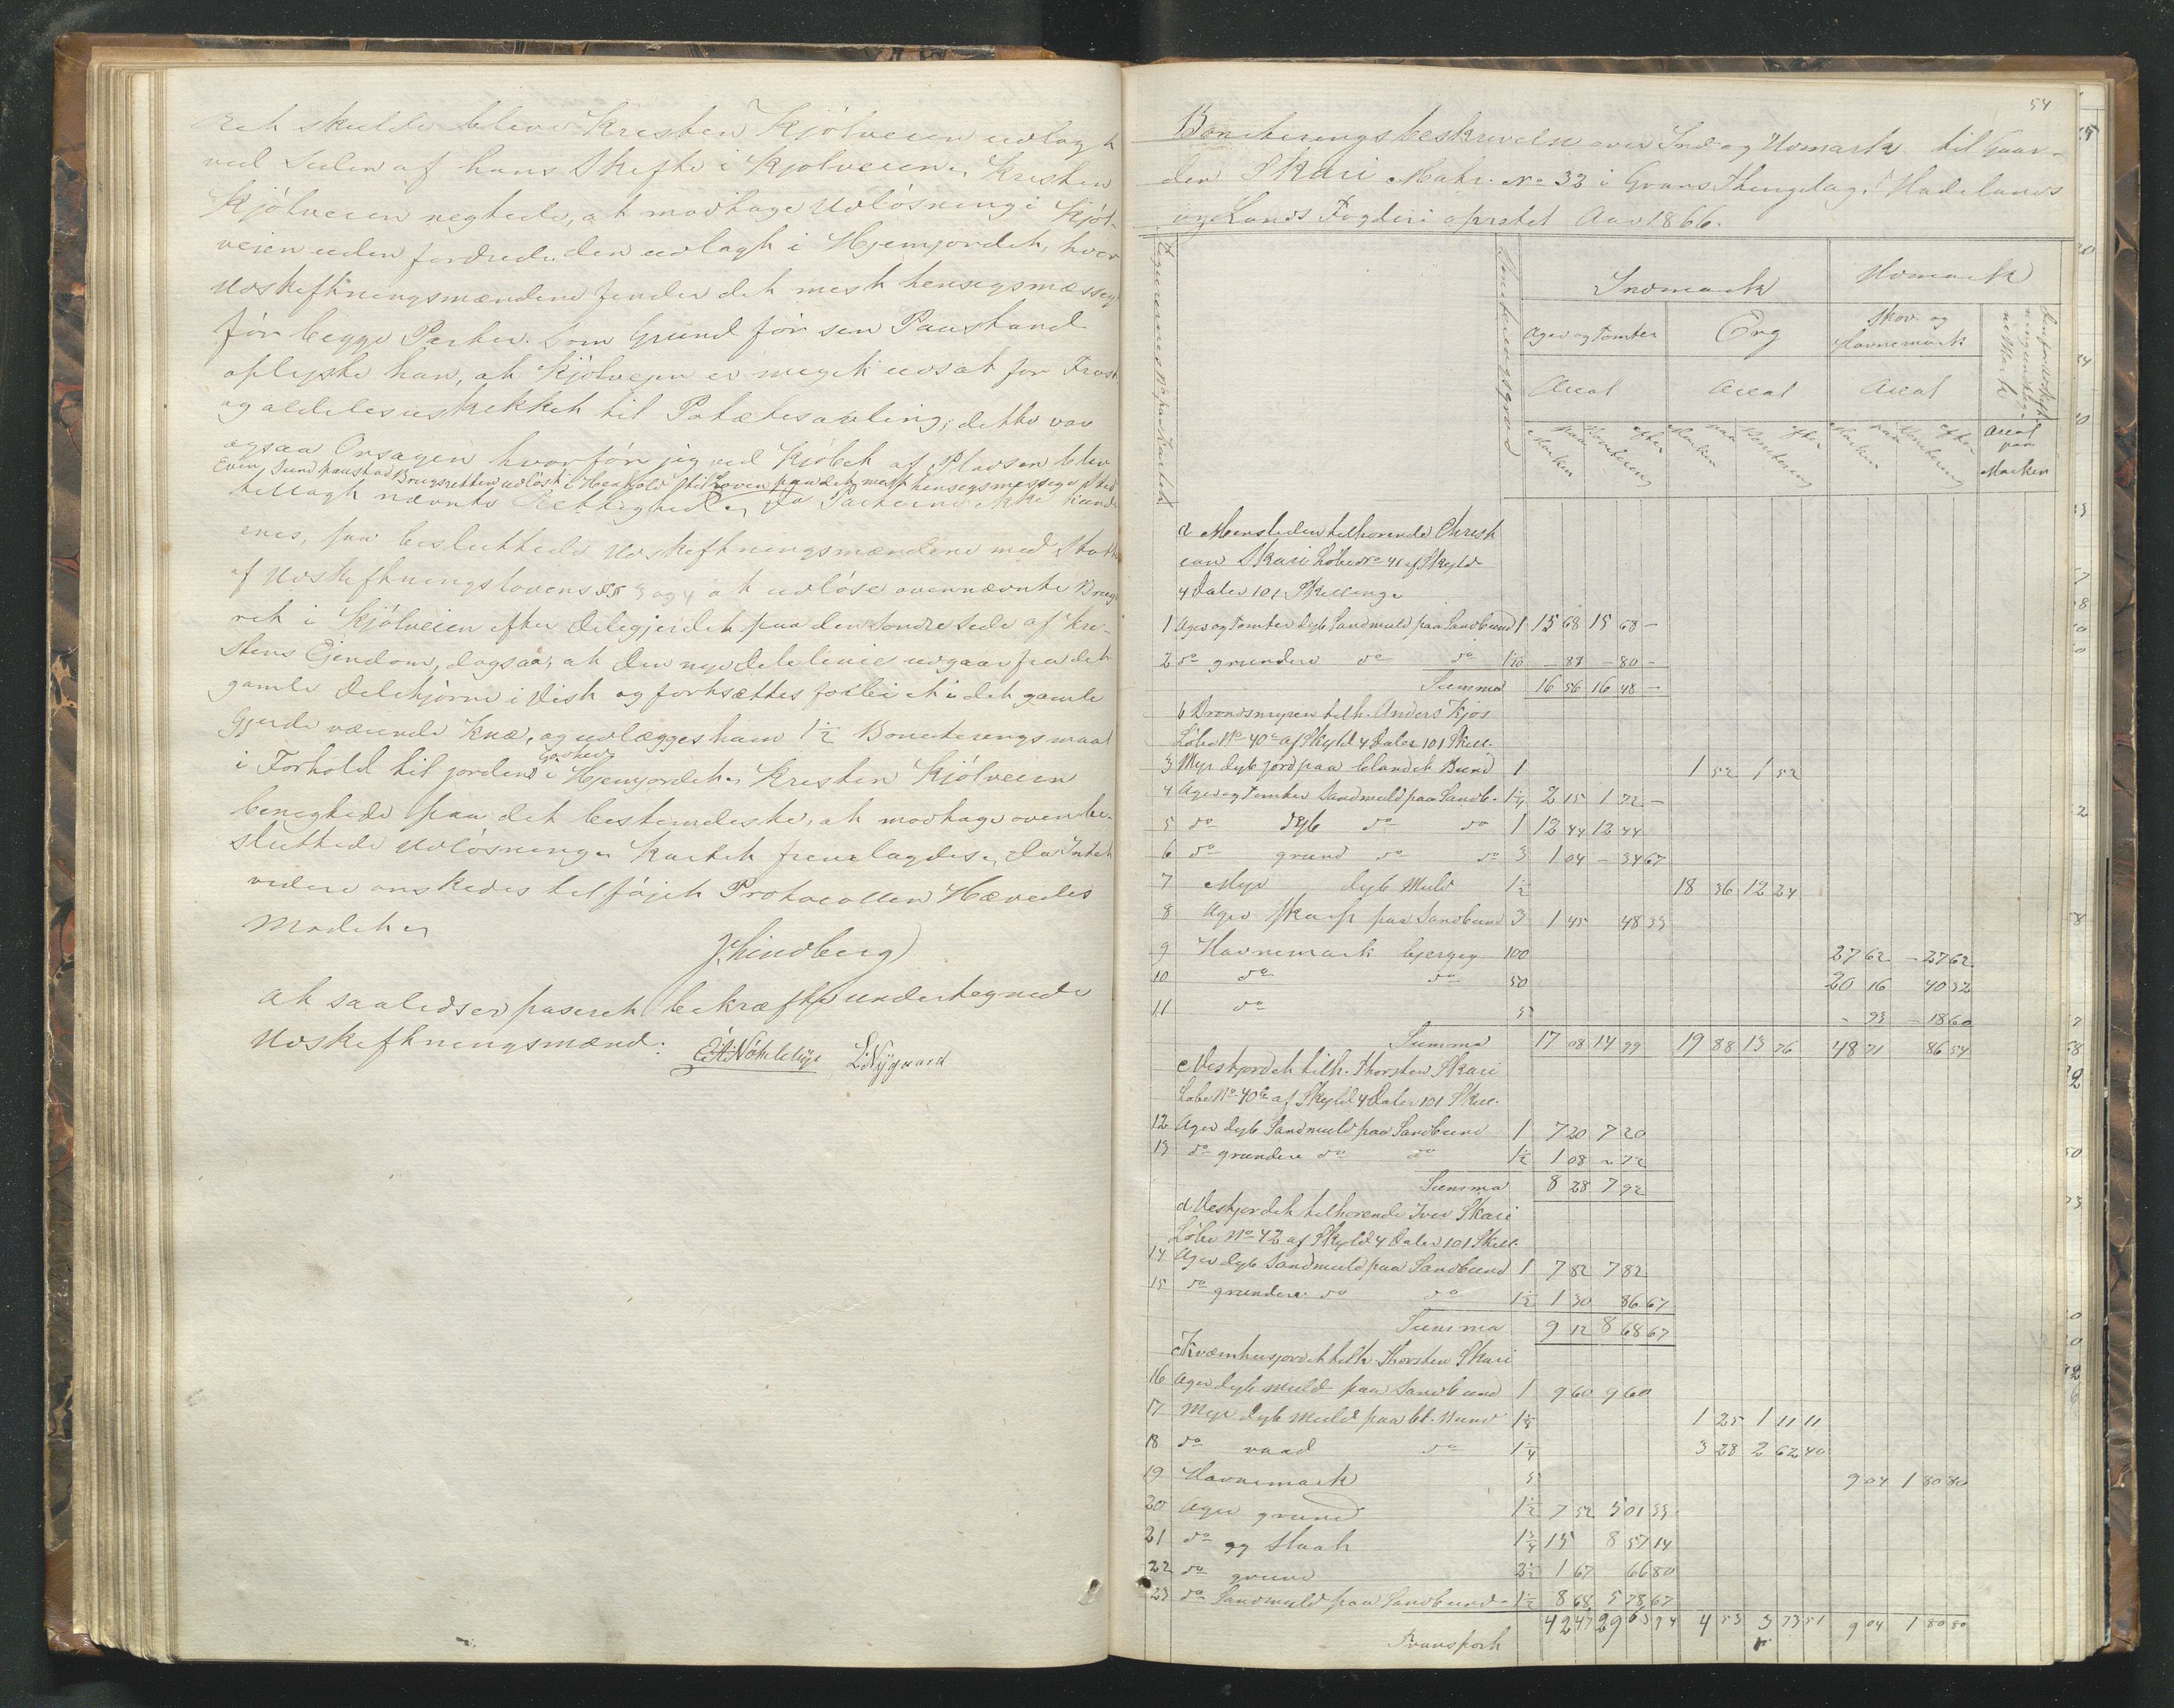 Ret skulde blive Kristen Kjölveien udlagt
ved Siden af hans Skifte i Kjölveien. Kristen
Kjölveien negtede, at modtage Udlösning i Kjöl-
veien uden fordrede den udlagt i Hjemjordet, hvor
Udskiftningsmændene finder det mest hensigsmæssig
för begge Parter. Som Grund för sin Paastand
oplyste han, at Kjölveien er meget udsat for Frost
og aldeles uskikket til Potætesavling; dette var
ogsaa Orsagen hvorför jeg ved Kjöbet af Pladsen blev
Even Sund paastod Brugsretten udlöst i Henhold til Loven paa det mest hensigsmessige Sted
tillagt nævnte Rettighed. Da Parterne ikke kunde
enes, saa besluttede Udskiftningsmændene med Stötte
af Udskiftningslovens §§ 3 og 4 at udlöse overnævnte Brugs
ret i Kjölveien efter Delegjerdet paa den Sondre Side af Kri-
stens Eiendom, dogsaa, at den nye Delelinie udgaar fra det
gamle Delehjörne i Vest og fortsættes forbi et i det gamle
Gjerde værende Knæ, og udlægges ham 1½ Boniteringsmaal
i Forhold til jordens Godhed i Hjemjordet. Kristen Kjölveien
benegtede paa det bestemdeste, at modtage ovenbe-
sluttede Udlösning. Kartet fremlagdes. Da Intet
videre onskedes tilföjet Protocollen Hævedes
Modet.
J. Lindberg
At saaledes er paseret bekræfte undertegnede
Udskiftningsmænd:
L. Nygaard
54
Boniteringsbeskrivelse over Ind og Udmark til Gaar-
den Skari Matr. No 33 i Grans Thinglag, Hadelands
og Lands Fogderi oprettet Aar 1866.
Figurernes No paa Kartet
Boniteringsgrad
Indmark
Udmark
Ager og Tomter
Eng
Skov og Havnemark
Areal
Areal
Areal
Areal paa Marken
paa Marken
efter Bonitering
paa Marken
efter Bonitering
paa Marken
efter Bonitering
a Mensleden tilhorende Christ
ian Skari Löbe No 41 af Skyld
4 Daler 101 Skilling.
1 Ager og Tomter dyb Sandmuld paa Sandbund 1 15 68 15 68 -
2 do grundere do do 1 1/10 - 88 - 80 -
Summa 16 56 16 48 -
b Brondsmyren tilh. Anders Kjos
Löbe No 40 a af Skyld 4 Daler 101 Skill.
3 Myr dyb jord paa blandet Bund 1 1 52 1 52
4 Ager og Tomter Sandmuld paa Sandb. 1¼ 2 15 1 72 -
5 do dyb do do 1 12 44 12 44
6 do grund do do 3 1 04 - 34 67
7 Myr dyb Muld 1½ 18 36 12 24
8 Ager skarp paa Sandbund 3 1 45 48 33
9 Havnemark bjergig 100 27 62 - 27 62
10 do do 50 20 16 40 32
11 do 5 - 93 - 18 60
Summa 17 08 14 99 19 88 13 76 48 71 86 54
c Vestjordet tilh. Thorsten Skari
Löbe No 40 b af Skyld 4 Daler 101 Skill.
12 Ager dyb Sandmuld paa Sandbund 1 7 20 7 20
13 do grundere do do 1½ 1 08 - 72
Summa 8 28 7 92
d Vestjordet tilhorende Iver Skari
Löbe No 42 af Skyld 4 Daler 101 Skill.
14 Ager dyb Sandmuld paa Sandbund 1 7 82 7 82
15 do grundere do do 1½ 1 30 86 67
Summa 9 12 8 68 67
e Kværnhusjordet tilh. Thorsten Skari
16 Ager dyb muld paa Sandbund 1 9 60 9 60
17 Myr dyb Muld paa bl. Bund 1⅛ 1 25 1 11 11
18 do vaad do 1¼ 3 28 2 62 40
19 Havnemark 5 9 04 1 80 80
20 Ager grund 1½ 7 52 5 01 33
21 do og Slaat 1¾ 15 8 57 14
22 do grund 2½ 1 67 66 80
23 do Sandmyld paa Sandbund 1½ 8 68 5 78 67
Transport 42 47 29 63 94 4 53 3 73 51 9 04 1 80 80